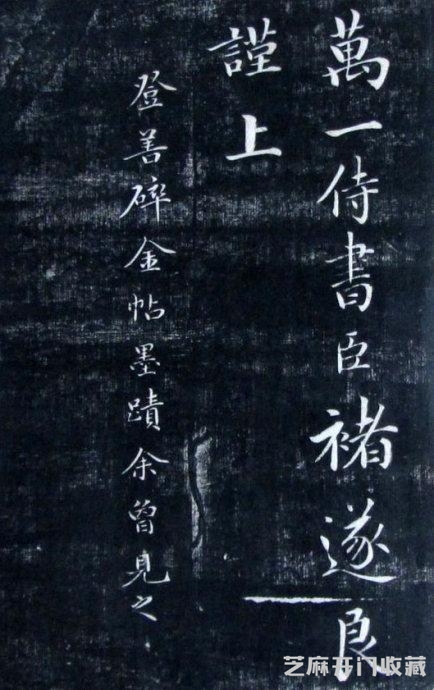 萬一侍書臣褚遂良
謹上
登善碎金帖墨蹟余曾見之
芝麻开门收藏